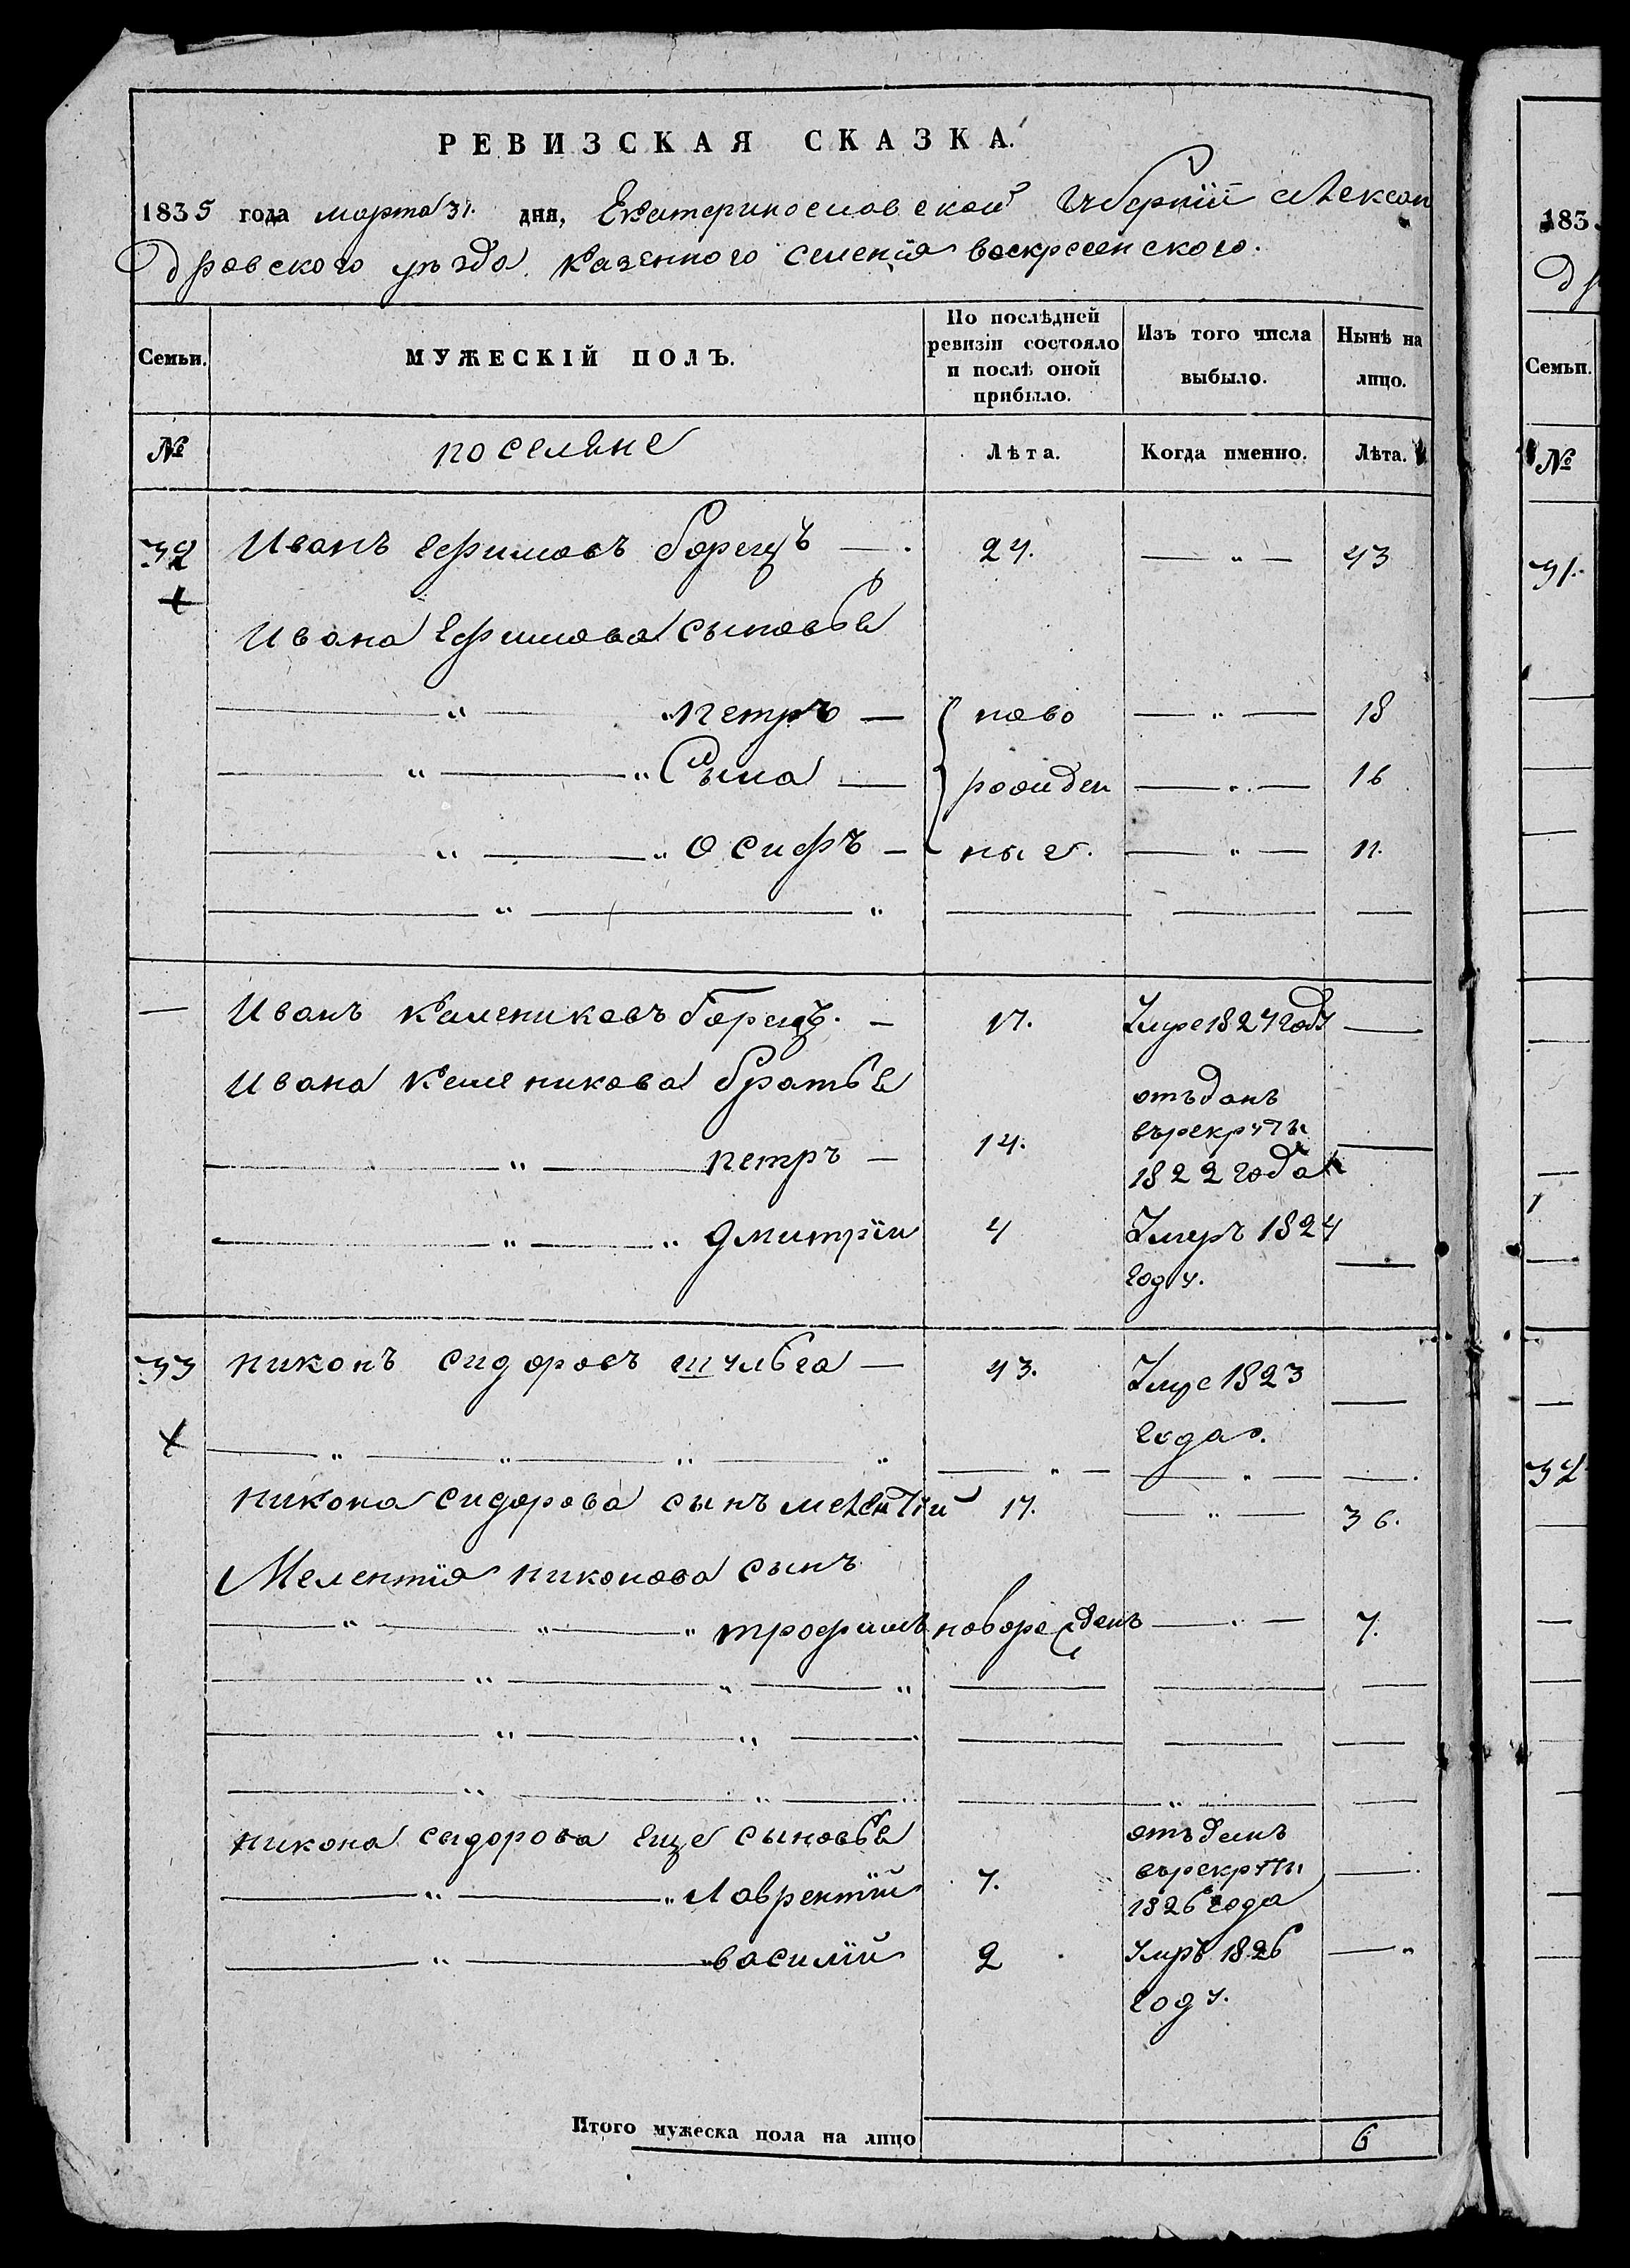 РЕВИЗСКАЯ СКАЗКА.
1835 года марта 31. дня, Екатеринославской Губерніи Алексан
дровского уѣзда. казенного селенія воскресенского.
Семьи.
МУЖЕСКІЙ ПОЛЪ.
По послѣдней ревизіи состояло и послѣ оной прибыло.
Изъ того числа выбыло.
Нынѣ на лицо.
№ поселяне Лѣта. Когда именно. Лѣта.
32 Иванъ Ефимовъ борецъ — 24. — „ — 43
Ивана Ефимова сыновья
— „ — „ петръ — ново — „ — 18
— „ — „ — рожден — „ — 16
— „ — „ осифъ — ные. — „ — 11.
— „ — „ — — —
— Иванъ Калениковъ борецъ. — 17. Умре 1827 году —
Ивана Каленикова братья
— „ — петръ — 14. отъданъ
върекруты —
1822 года
— „ — „ дмитріи 4 Умеръ 1824 —
году.
33 никонъ сидоровъ шульга — 43. Умре 1823 —
года.
— „ — „ — „ — „ — „ — — „ — —.
никона сидорова сынъ мелентій 17. — „ — 36.
Мелентія никонова сынъ
— „ — „ — „ трофимъ новорожденъ — „ — 7.
— „ — „ — „ — — —
— „ — „ — — — —
— „ — „ — — — „ — —
никона сидорова еще сыновья отъданъ
— „ — „ Лаврентій 7. върекруты —
1826 года
— „ — „ василій 2 Умръ 1826 — „
году.
Итого мужеска пола на лицо 6
183
др
Семьи.
№
31.
32